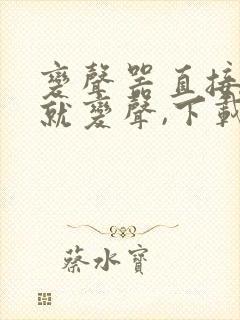 變聲器直接
就變聲,下載
蔡水寶